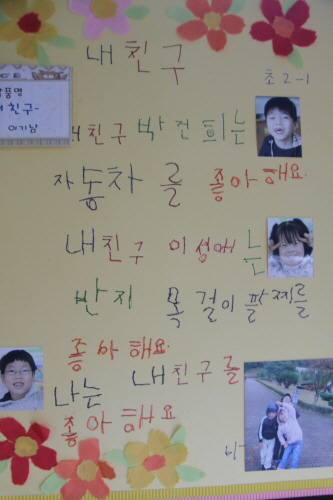 내 친구
초 2-1
내 친구
내친구 박건희는
자동차를 좋아해요.
내친구 이성애는
반지 목걸이 팔찌를
좋아해요.
나는 내친구를
좋아해요